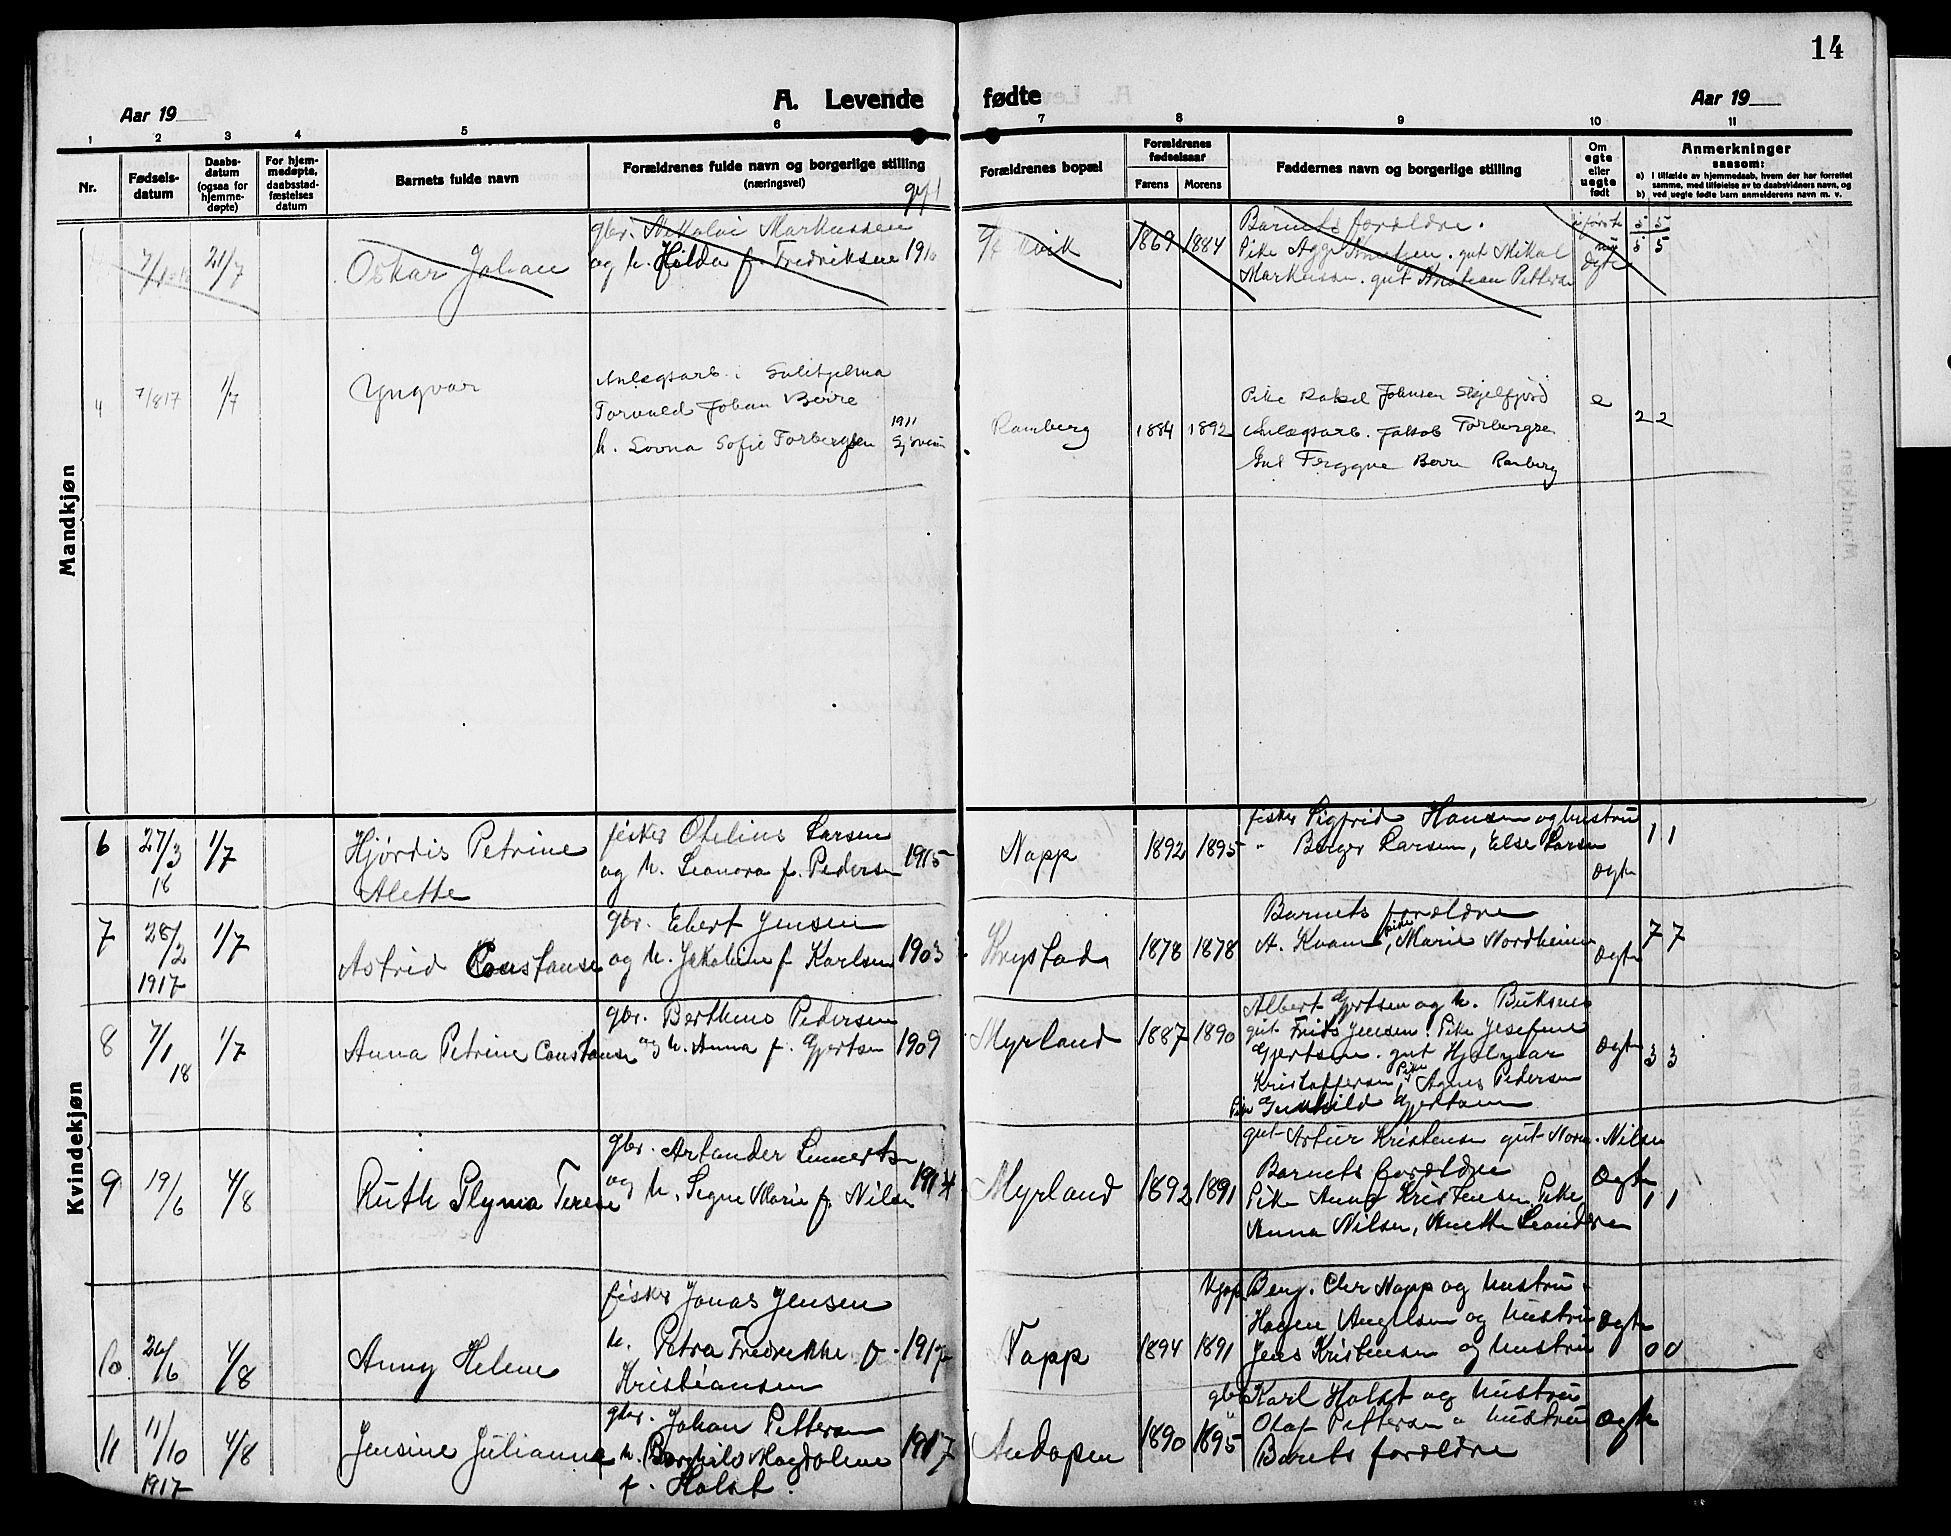 14
A. Levende fødte
Aar 19
Aar 19
1 2 3 4 5 6 7 8 9 10 11
Nr.
Fødsels-
datum
Daabs-
datum
(ogsaa for
hjemme-
døpte)
For hjem-
medøpte,
daabsstad-
fæstelses
datum
Barnets fulde navn
Forældrenes fulde navn og borgerlige stilling
(næringsvei)
gift
Forældrenes bopæl
Forældrenes
fødselsaar
Farens Morens
Faddernes navn og borgerlige stilling
Om
egte
eller
uegte
født
Anmerkninger
saasom:
a) I tilfælde av hjemmedaab, hvem der har forrettet
samme, med tilføielse av to daabsvidners navn, og
b) ved uegte født barn anmelderens navn m. v.
Mandkjøn
21/7
Oskar Johan
gbr. Nikolai Markussen
og h. Hilda f. Fredriksen
1869 1884
Barnets forældre.
Pike Knutsen. gut Mikal
Markussen. gut Kristian Petters
5 5
5 5
4 7/8 17 1/7
Yngvar
Anlægsarb. i Sulitjelma
Torvald Johan Berre
h. Lovna Sofie Torbergsen
1911
Ramberg
1884 1892
Pike Rakel Johnsen Skjelfjord
Anlægsarb. Jakob Torbergse
Gut Tryggve Berre Ramberg
e
2 2
Kvindekjøn
6 27/3 18 1/7
Hjørdis Petrine
Alette
fisker Otelius Larsen
og h. Leonora f. Pedersen
1915
Napp
1892 1895
fisker Sigfrid Hansen og hustru
" Berger Larsen, Else Larsen
Ogte
1 1
7 28/2 1917 1/7
Astrid Constanse
gbr. Ebert Jensen
og h. Jakobine f Karlsen
1903
Krystad
1878 1878
Barnets forældre
A. Kvam, pike Marie Nordheim
Ogte
7 7
8 7/1 18 1/7
Anna Petrine Constanse
gbr. Bertheus Pedersen
og h. Anna f. Gjertsen
1909
Myrland
1887 1890
Albert Gjertsen og h. Buksnes
gut Frids Jensen. Pike Josefine
Gjertsen. gut Hjalmar
Kristoffersen, Pike Agnes Pedersen
Pike Gunhild Gjertsen
Ogte
3 3
9 19/6 4/8
Ruth Plyma Terese
gbr. Artander Lennerts
og h. Signe Marie f. Nilsen
1914
Myrland
1892 1891
gut Artur Kristensen gut Nilsen
Barnets forældre
Pike Anna Kristensen, Pike
Anna Nilsen, Anette Leandersen
Ogte
1 1
10 26/6 4/8
Anny Helene
fisker Jonas Jensen
h. Petra Fredrikke f.
Kristiansen
1917
Napp
1894 1891
Kjøp. Berg. Chr Napp og hustru
Hagen Angelsen og hustru
Jens Kristensen og hustru
Ogte
0 0
11 11/10 1917 4/8
Jensine Julianne
gbr. Johan Pettersen
h. Borghild Magdalene
f. Holst.
1917
Andopen
1890 1895
gbr Karl Holst og hustru
" Olaf Pettersen " hustru
Barnets forældre
Ogte